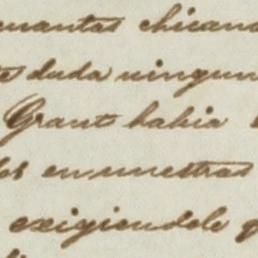 cuantas chican
te duda ningun
Grant habia
les en nuestras
exigiendole